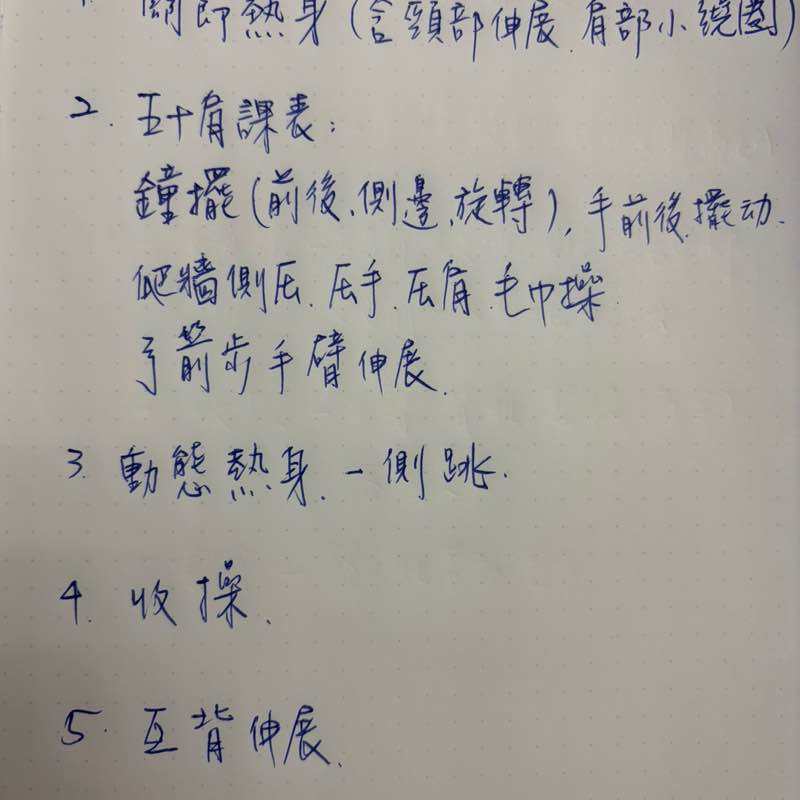 關節熱身(含頸部伸展、肩部小繞圈)
2. 五十肩課表:
鐘擺(前後、側邊、旋轉), 手前後擺动、
爬牆側压、压手、压肩、毛巾操、
弓箭步手臂伸展、
3. 動態熱身、-側跳、
4. 收操、
5. 互背伸展、